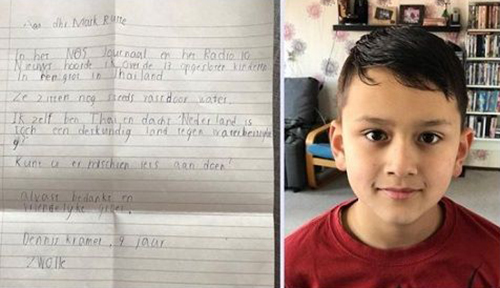 Aan dhr Mark Rutte
In het NOS Journaal en het Radio 10
Nieuws hoorde ik over de 12 opgesloten kinderen
In een grot in Thailand
Ze zitten nog steeds vast door water.
Ik zelf ben Thai en dacht Nederland is
toch een deskundig land tegen
g?
Kunt u er misschien iets aan doen?
Alvast bedankt en
vriendelijke groet.
Dennis Kramer, 9 jaar
Zwolle